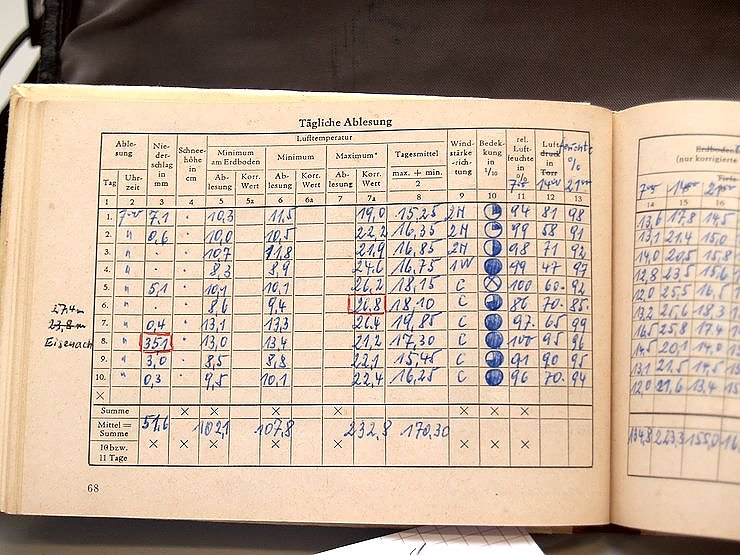 Tägliche Ablesung
Able- sung Nie- der- schlag in mm Schnee- höhe in cm Lufttemperatur Wind- stärke -rich- tung Bedek- kung in 1/10 rel. Luft- feuchte in % Luft- druck in Torr feuchte %
Minimum am Erdboden Minimum Maximum* Tagesmittel
Tag Uhr- zeit Ab- lesung Korr. Wert Ab- lesung Korr. Wert Ab- lesung Korr. Wert max. + min. 2 7 00 14 00 21 00
1 2 3 4 5 5a 6 6a 7 7a 8 9 10 11 12 13
1. 7 00 7,1 · 10,3 11,5 19,0 15,25 2N 94 81 98
2. " 0,6 · 10,0 10,5 22,2 16,35 2N 99 58 91
3. " · 10,7 11,8 21,9 16,85 2N 98 71 92
4. " · 8,3 8,9 24,6 16,75 1W 99 47 97
5. " 5,1 · 10,1 10,1 26,2 18,15 C 100 60 92
6. " · 8,6 9,4 26,8 18,10 C 86 70 85
7. " 0,4 · 13,1 13,3 26,4 19,85 C 97 65 99
8. " 35,1 · 13,0 13,4 21,2 17,30 C 100 95 96
9. " 3,0 · 8,5 8,8 22,1 15,45 C 91 90 95
10. " 0,3 · 9,5 10,1 22,4 16,25 C 96 70 94
×
Summe × × × × × ×
Mittel = Summe 51,6 102,1 107,8 232,8 170,30
10 bzw. 11 Tage × × × × × × × ×
27.4 m
23,8 m
Eisenach
68
Erdboden
(nur korrigierte
Tiefe
7 00 14 00 21 00
14 15 16
13,6 17,8 14,5
13,1 21,4 15,0
14,0 20,5 15,8
12,8 23,5 15,6
12,0 25,5 16,5
13,2 25,6 18,3
16,5 25,8 17,4
14,5 20,1 14,0
13,1 21,5 14,5
12,0 21,6 13,4
134,8 223,3 155,0